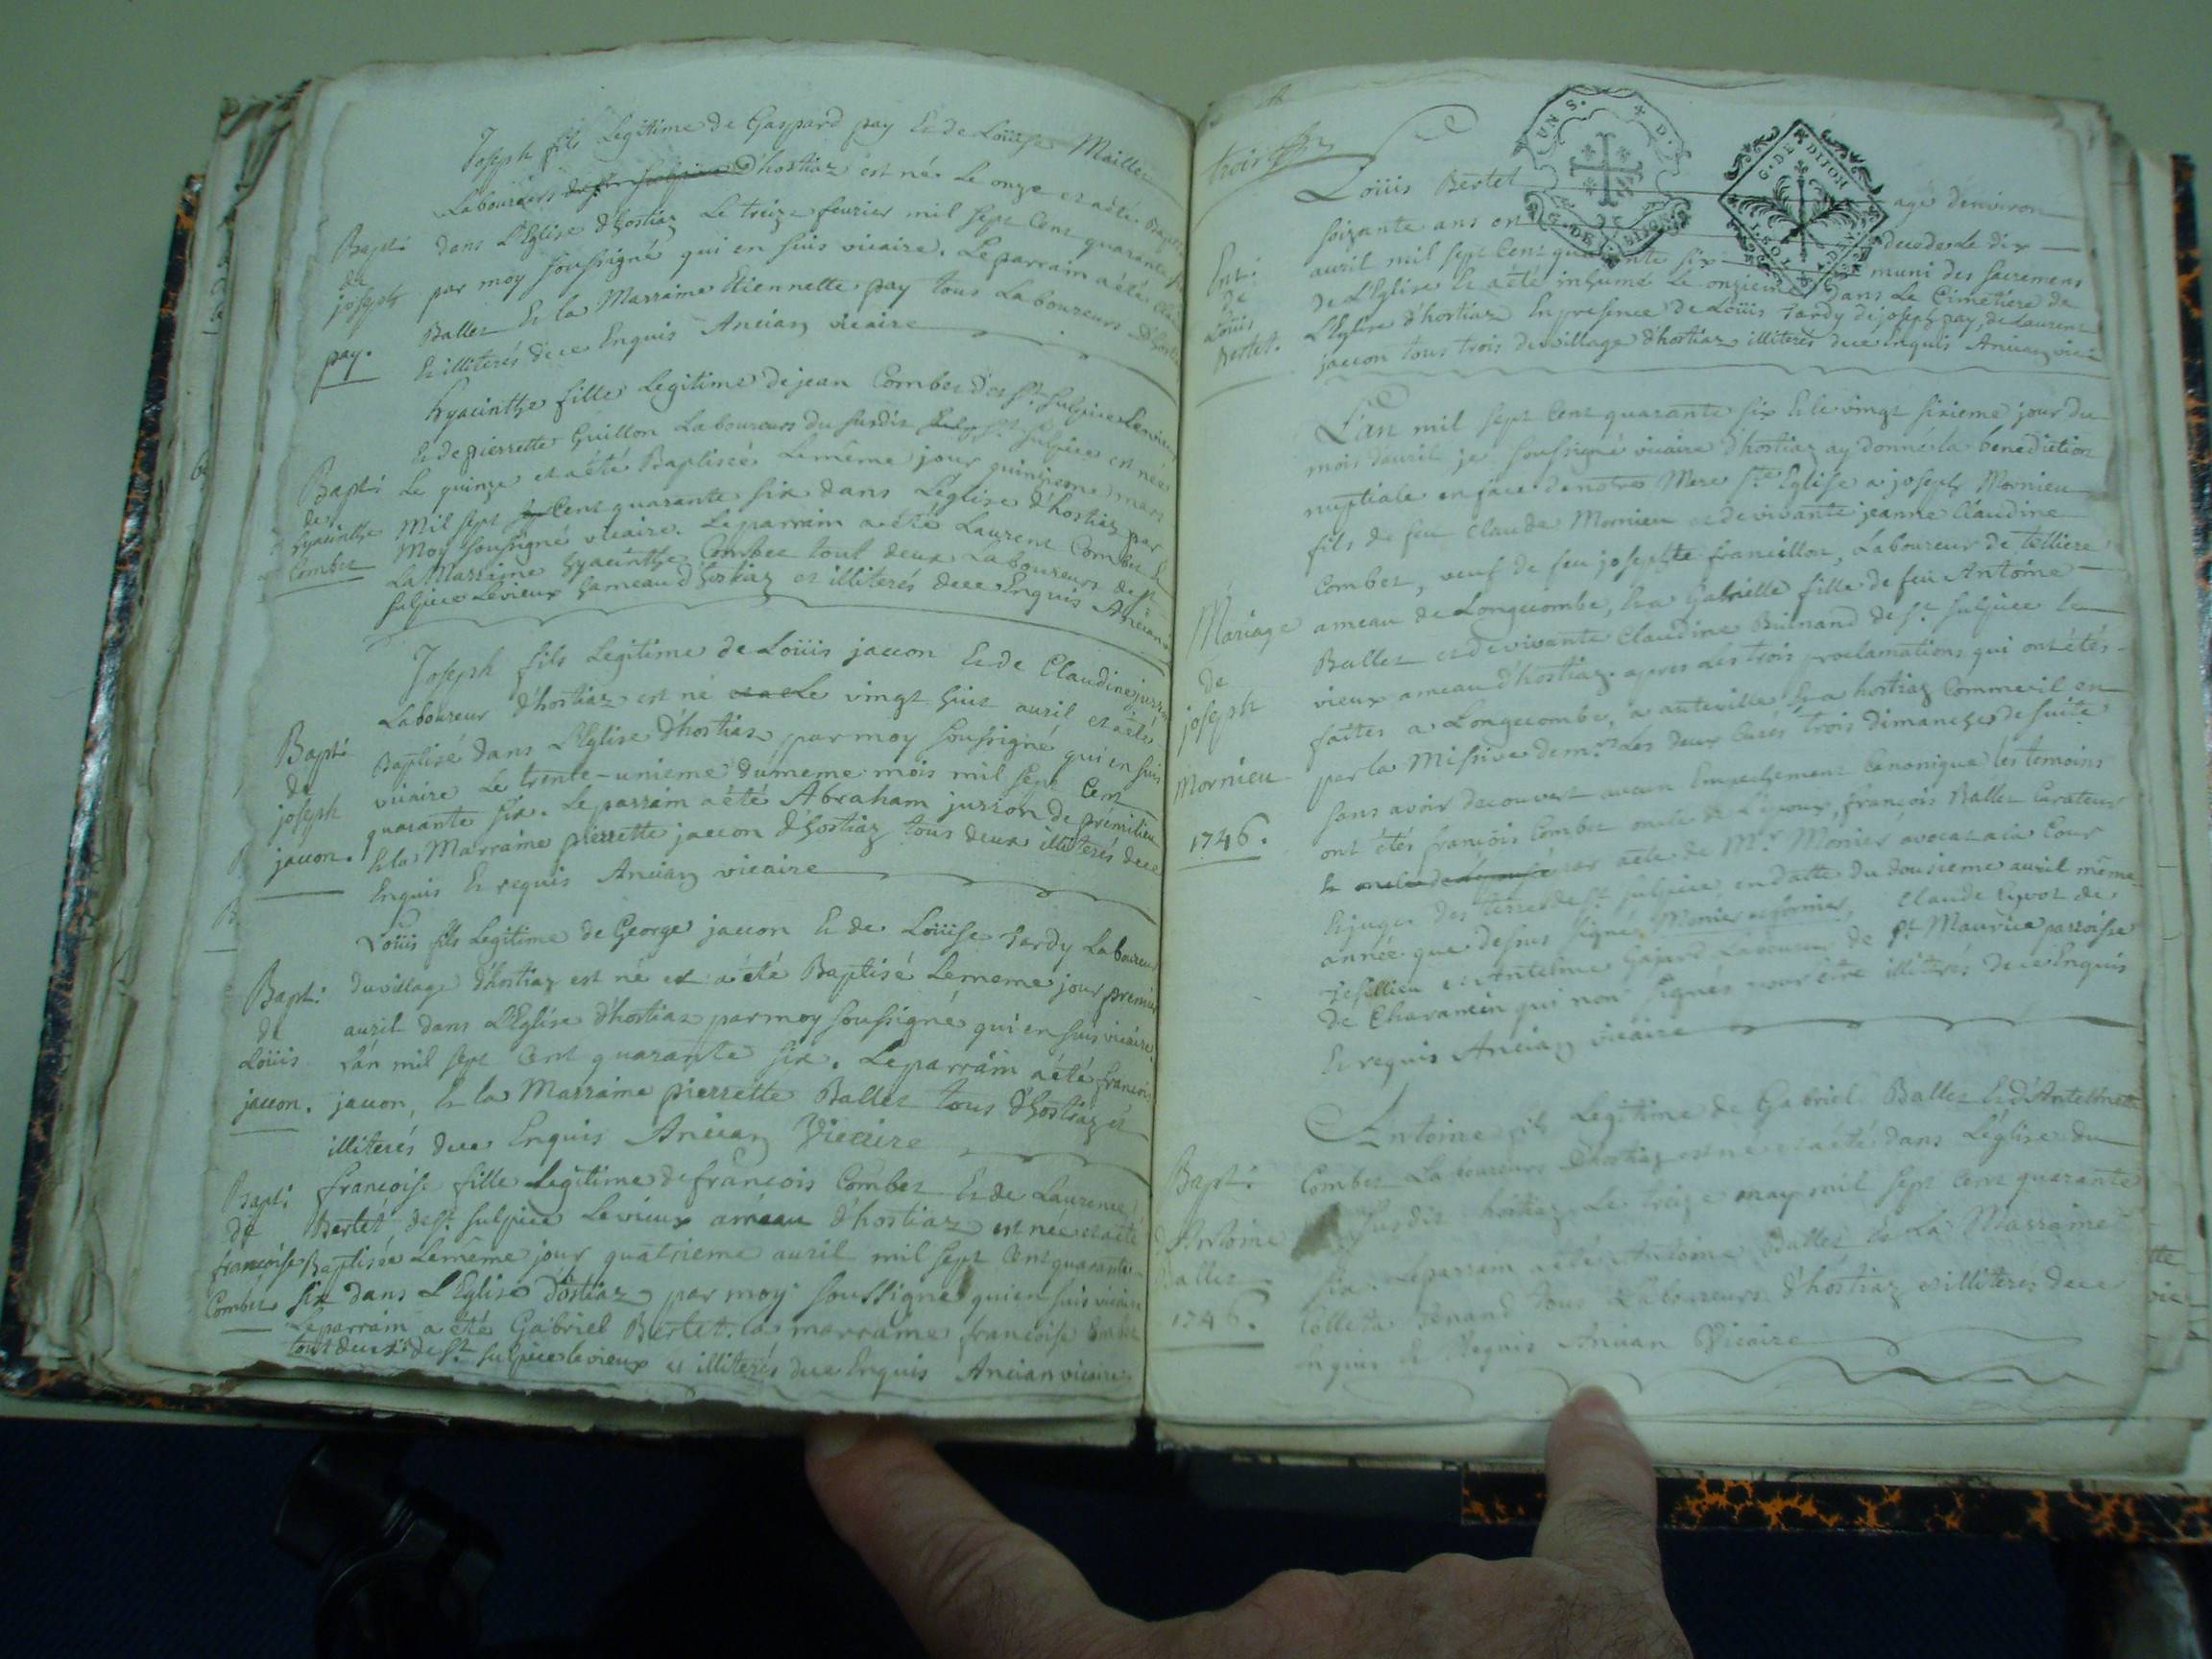 Joseph fils Legitime de Gaspard pay Et de Loüise Maillet
Laboureurs d'hostiaz est né Le onze et a été Bapti
Bapt:
de
joseph
pay.
dans L'Eglise d'hostiaz Le treize fevrier mil sept Cent quarante six
par moy soussigné qui en suis vicaire. Le parrain a été
Ballet Et la Marraine Etiennette pay tous Laboureurs d'hostiaz
Et illiterés de ce Enquis Ancian vicaire
hyacinthe fille Legitime de jean Combet de st. Sulpice Levieux
Et de pierrette Guillon Laboureurs du susdit st. Sulpice est née
Bapt:
de
hyacinthe
Combet
Le quinze et a été Baptisée Lemême jour quinzieme mars
Mil sept Cent quarante six dans L'église d'hostiaz par
Moy soussigné vicaire. Le parrain a été Laurent Combet Et
La Marraine hyacinthe Combet tout deux Laboureurs de st.
Sulpice Levieux hameau d'hostiaz et illiterés de ce Enquis Ancian
Joseph fils Legitime de Loüis jacon Et de Claudine juzron
Laboureur d'hostiaz est né Le vingt huit avril et a été
Bapt:
de
joseph
jacon.
Baptisé dans L'Eglise d'hostiaz par moy soussigné qui en suis
vicaire Le trente-unieme du meme mois mil sept Cent
quarante six. Le parrain a été Abraham juzron de premilieu
Et la Marraine pierrette jacon d'hostiaz tous deux illiterés de ce
Enquis Et requis Ancian vicaire
Loüis fils Legitime de George jacon Et de Loüise tardy Laboureur
Bapt:
de
Loüis
jacon.
du village d'hostiaz est né et a été Baptisé Lememe jour premier
avril dans L'Eglise d'hostiaz par moy soussigné qui en suis vicaire
L'an mil sept Cent quarante six. Le parrain a été francois
jacon, Et la Marraine pierrette Ballet tous d'hostiaz et
illiterés de ce Enquis Ancian Vicaire
Bapt:
de
francoise
Combet
francoise fille Legitime de francois Combet Et de Laurence
Bertet de st. Sulpice Levieux ameau d'hostiaz est née et a été
Baptisée Lemême jour quatrieme avril mil sept Cent quarante
six dans L'Eglise d'ostiaz par moy soussigné qui en suis vicaire
Le parrain a été Gabriel Bertet. la marraine francoise Combet
tout deux de st. Sulpice levieux et illiterés de ce Enquis Ancian vicaire.
trois
UNS. D.
G. DE DIJON
Loüis Bertet agé d'environ
Ent:
de
Loüis
Bertet.
soixante ans est decedé Le dix
avril mil sept Cent quarante six muni des sacremens
de L'Eglise Et a été inhumé Le onzieme dans Le Cimetiere de
L'Eglise d'hostiaz En presence de Loüis tardy de joseph pay, de Laurent
jacon tous trois du village d'hostiaz illiterés de ce Enquis Ancian vicaire
L'an mil sept Cent quarante six Et le vingt sixieme jour du
mois d'avril je soussigné vicaire d'hostiaz ay donné la benediction
nuptiale en face de notre Mere ste. Eglise a joseph Mornieu
fils de feu Claude Mornieu et de vivante jeanne Claudine
Combet, veuf de feu josephte francillon, Laboureur de telliere
Mariage
de
joseph
Mornieu
1746.
ameau de Longecombe, Et a Gabrielle fille de feu Antoine
Ballet et de vivante Claudine Brunand de st. Sulpice le
vieux ameau d'hostiaz. apres Les trois proclamations qui ont étés
faites a Longecombe, a auteville Et a hostiaz Comme il en
par la Missive de mrs. Les deux Curés trois dimanches de suite
sans avoir decouvert aucun Empechement Canonique les temoins
ont étés françois Combet oncle de L'époux, françois Ballet Curateur
par acte de Mr. Monier avocat a la Cour
Et juge des terres de st. Sulpice en datte du dousieme avril même
année que dessus signé Monier et fornier, Claude Cyvot de
jesillieu et Antelme Gajard Laboureur de st. Maurice parroisse
de Charancin qui non signés pour être illiterés de ce Enquis
Et requis Ancian vicaire
Antoine fils Legitime de Gabriel Ballet Et d'Antelmette
Bapt:
Antoine
Ballet
1746.
Combet Laboureurs d'hostiaz est né et a été dans L'église du
susdit hostiaz Le treize may mil sept Cent quarante
six. Le parrain a été Antoine Ballet Et La Marraine
Colleta Renand tous Laboureurs d'hostiaz et illiterés de ce
Enquis Et Requis Ancian Vicaire